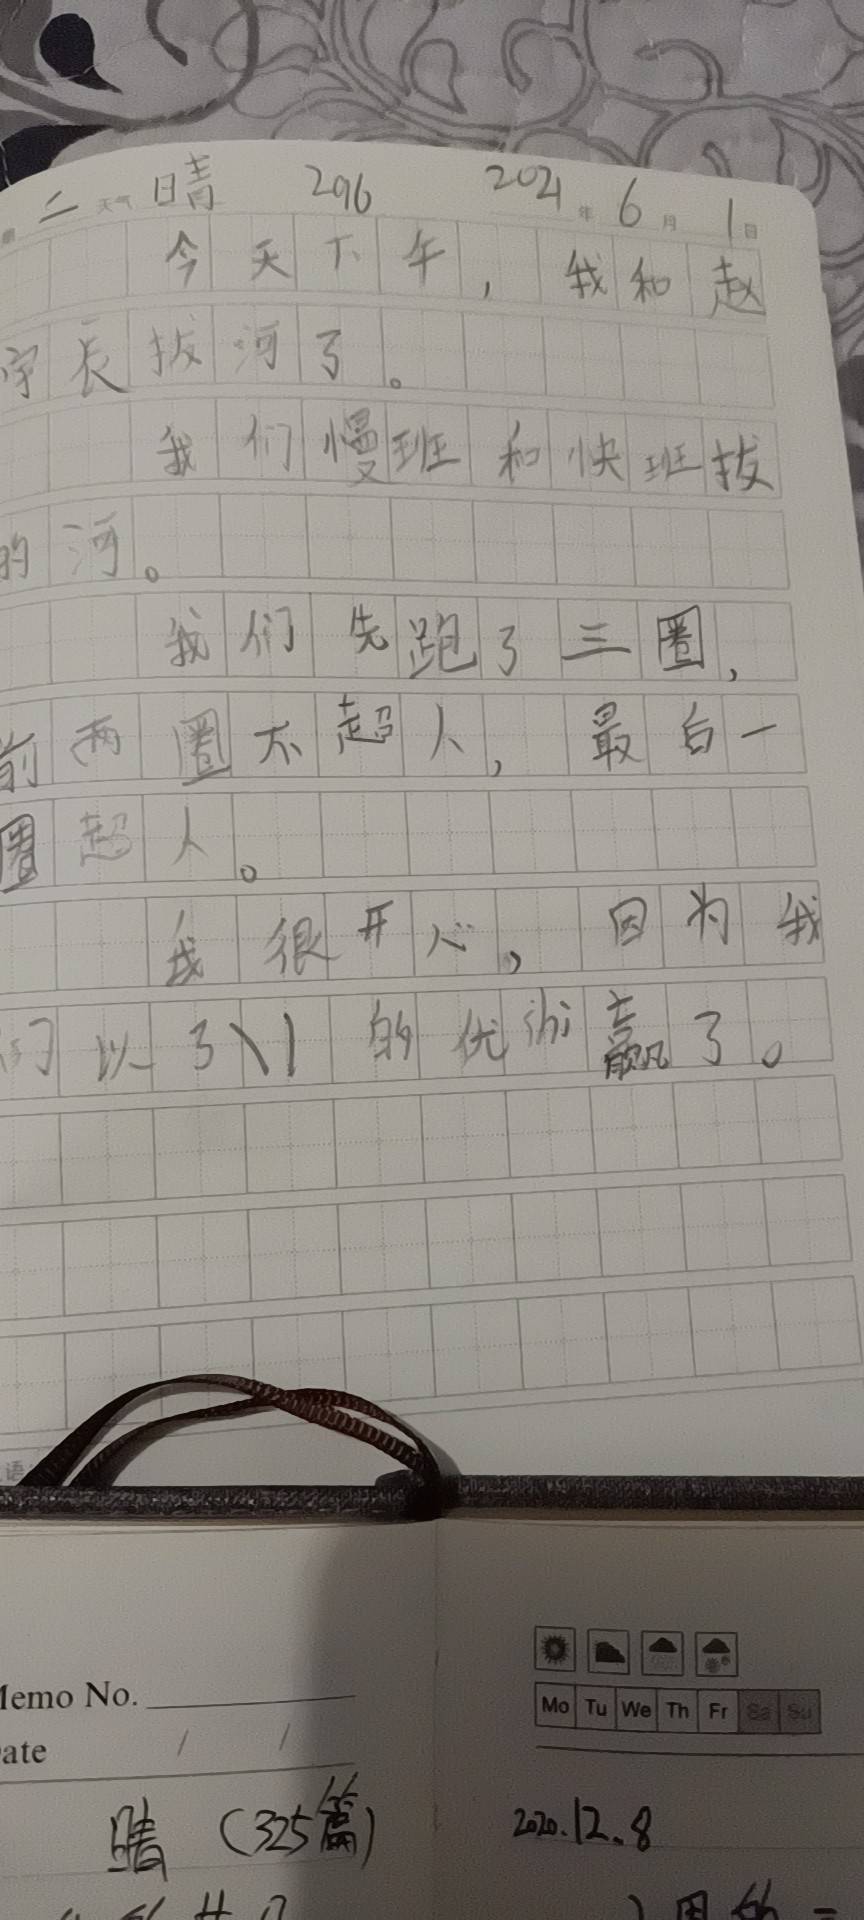 二 天气 晴 296 2021 年 6 月 1 日
今天下午，我和赵
宇辰拔河了。
我们慢班和快班拔
的河。
我们先跑了三圈，
前两圈不超人，最后一
圈超人。
我很开心，因为我
们以了 的优 赢了。
语
Memo No.
Date / /
Mo Tu We Th Fr Sa Su
晴（325篇） 2020.12.8